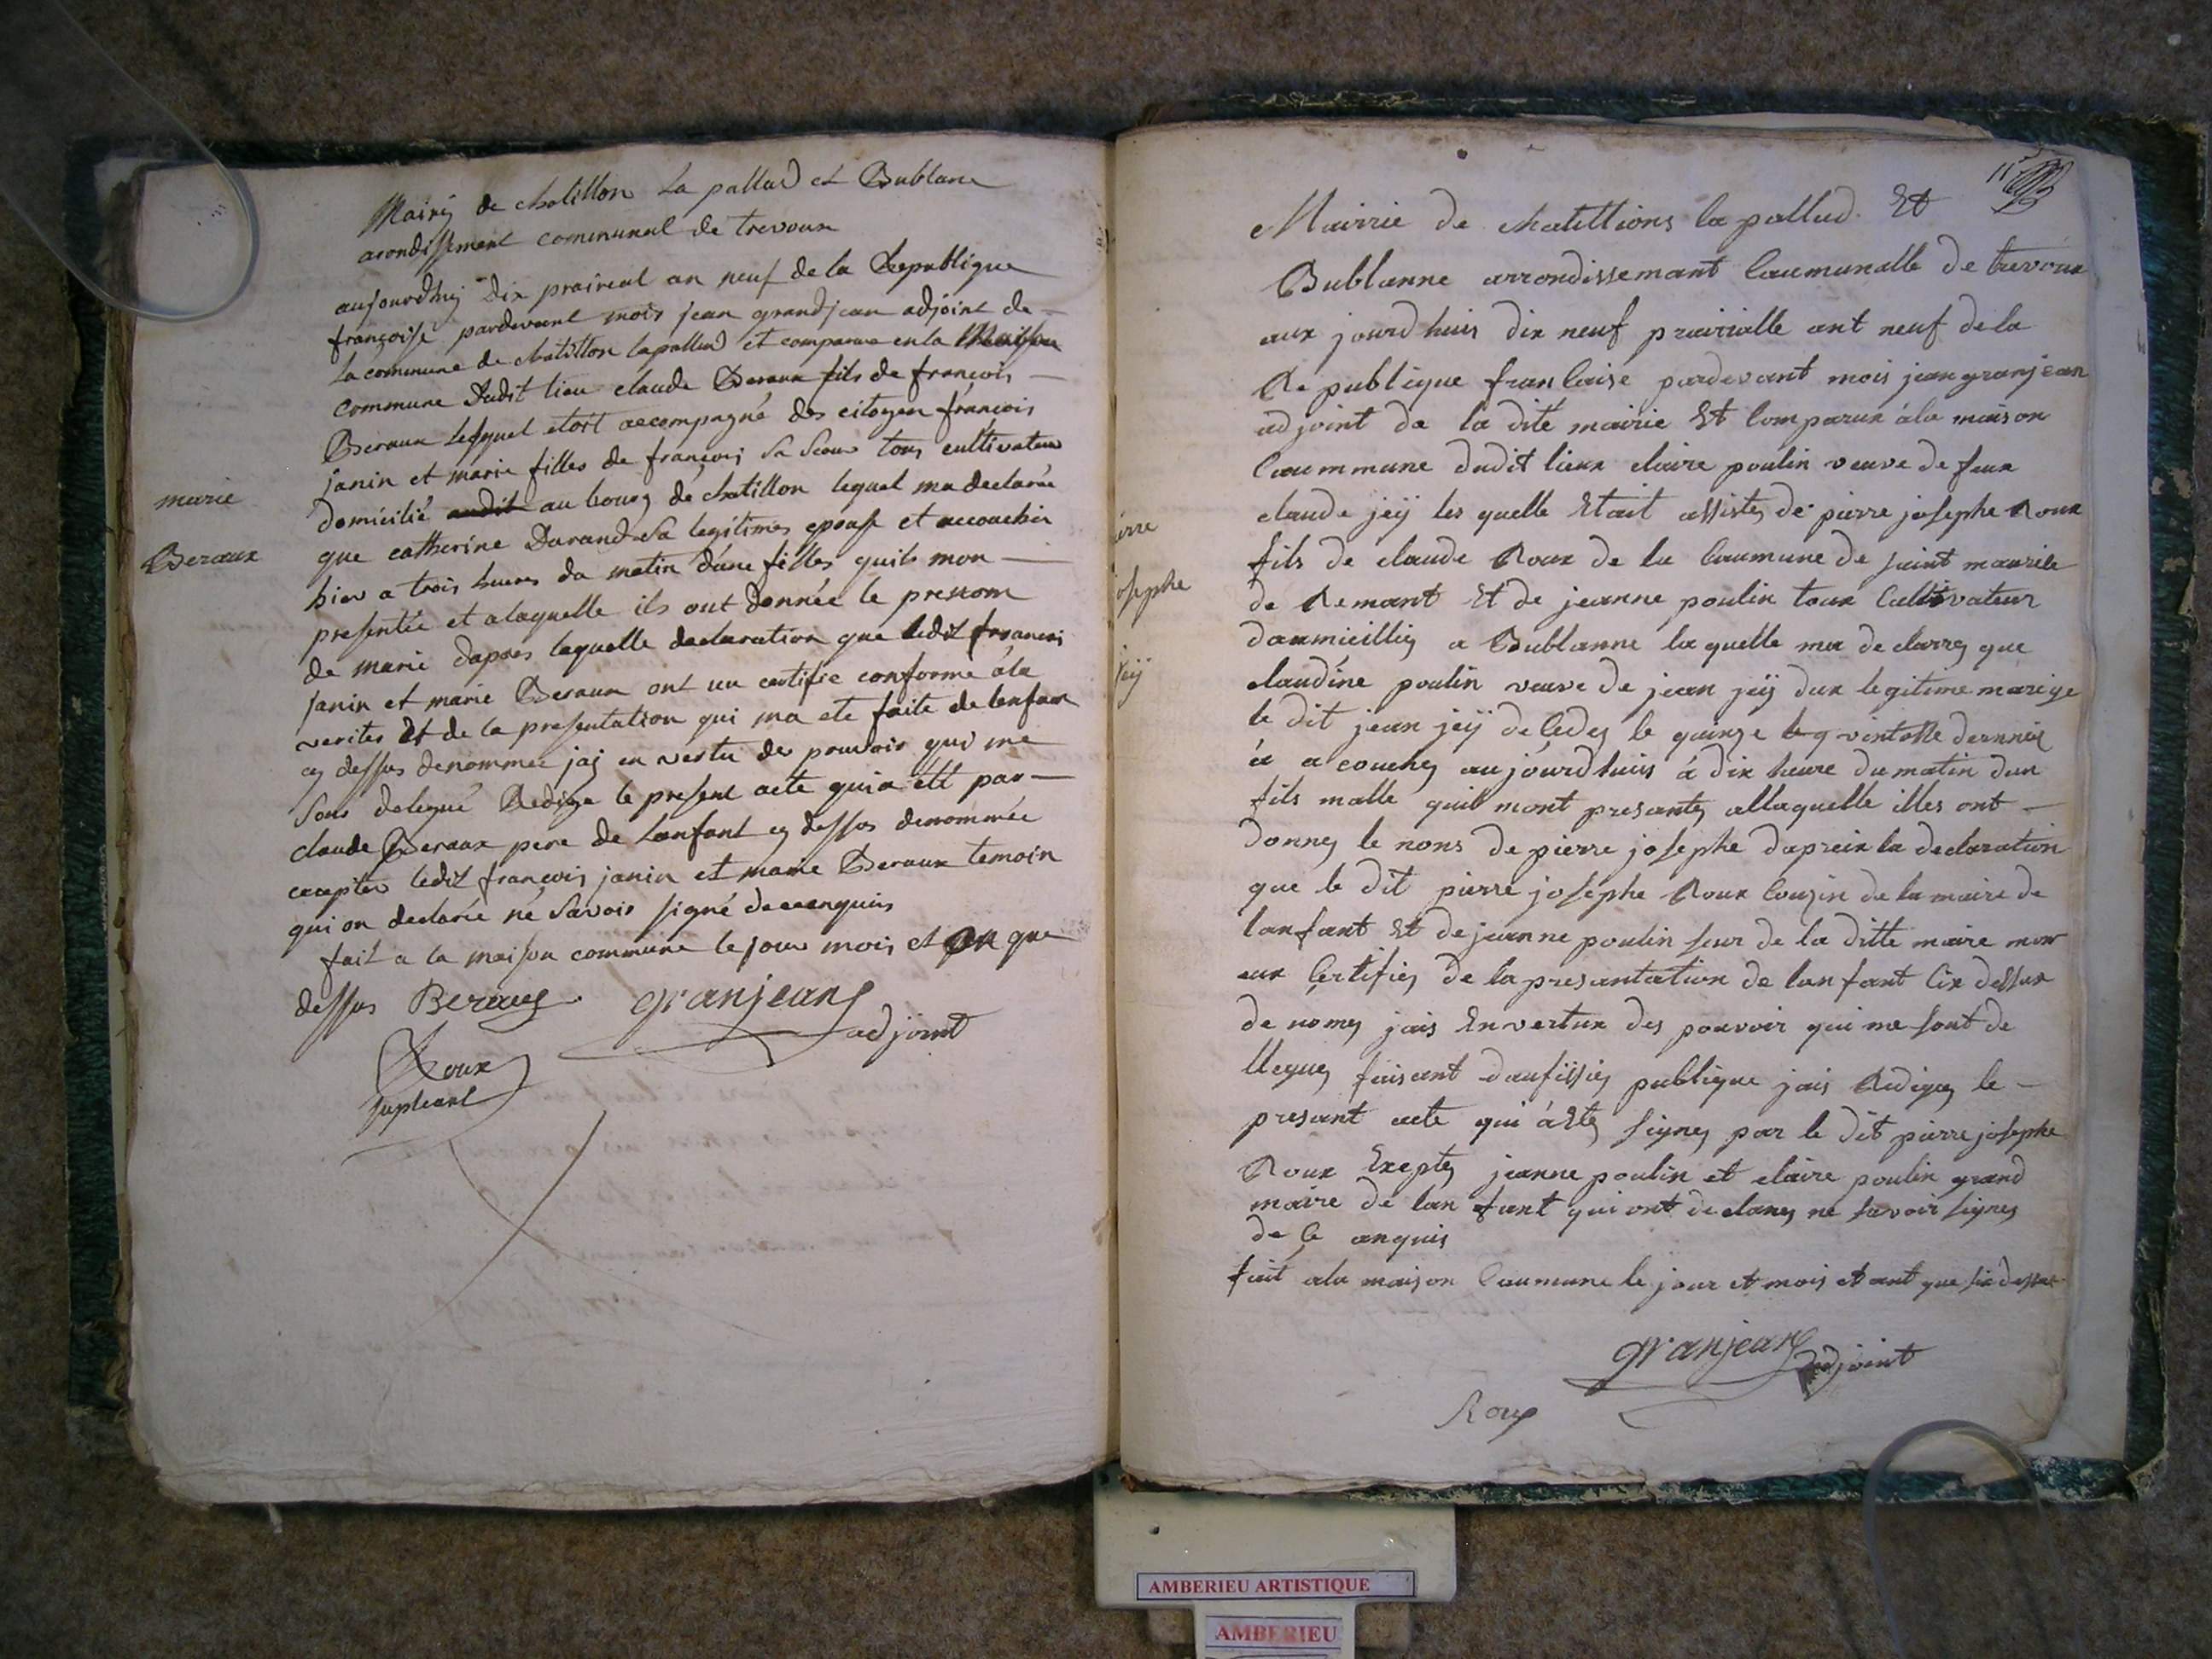 Mairiy de chatillon La pallud et Bublane
arondissement communal de trevoux
aujourdhuy dix praireal an neuf de la Republique
françoise pardevant mois jean grandjean adjoint de
La commune de chatillon lapallud et comparue en la Maison
commune dudit lieu claude Beraux fils de françois
Beraux lesquel etoit accompagné des citoyen françois
janin et marie filles de françois Sa Seour tous cultivateur
domicilié audit au bourg de chatillon lequel ma declarée
que catherine Durand Sa legitimes epouse et accouchée
hier a trois heures du matin d'une filles quils mon
presentée et alaquelle ils ont donnée le prenom
de marie dapres laquelle declaration que ledit francois
janin et marie Beraux ont certifie conforme àla
verites Et de la presentation qui ma ete faite de lenfant
cy dessus denommee jaj en vertu des pouvoir qui me
Sont delegué Redige le present acte qui a ett par
claude Beraux pere de L'anfant cy dessus denommée
excepter ledit françois janin et marie Beraux temoin
qui on declarée né Savoir signé de ce enquis
fait a la maison commune le jour mois et an que
dessus Beraux granjean
adjoint
Roux
supleant
marie
Beraux
11
Mairrie de chatillions la pallud Et
Bublanne arrondissemant Caumunalle de trevoux
aux jourdhuis dix neuf prairialle ant neuf de la
Re publique franCaise pardevant mois jean granjean
adjoint de la dite mairie Et Comparux àla maison
Caummune dudit lieux claire poulin veuve de feux
claude jeÿ les quelle Etait assistez de pierre josephe Roux
fils de claude Roux de la Caumune de saint maurice
de Remant Et de jeanne poulin toux Cultivateur
daumicilliez a Bublanne la quelle ma de clarrez que
claudine poulin veuve de jean jeÿ dux legitime mariage
le dit jean jeÿ deCedez le quinze ventosse dernier
à a couchez aujourdhuis à dix heure du matin dun
fils malle quil mont presantez allaquelle illes ont
donnez le nons de pierre josephe dapreix la declaration
que le dit pierre josephe Roux Couzin de la maire de
lanfant Et de jeanne poulin seur de la ditte maire mon
eux Certifiez de la presantation de lanfant Cix dessux
de nomez jais En vertux des pouvoir qui me sont de
lleguez faisant daufissiez publique jais Rediger le
presant acte qui àEtez signez par le dit pierre josephe
Roux Exeptez jeanne poulin et claire poulin grand
maire de lan fant qui ont de clarez ne savoir signez
de Ce anquis
fait ala maison Caumune le jour et mois et ant que six dessux
granjean adjoint
Roux
ierre
osephe
jeÿ
AMBERIEU ARTISTIQUE
AMBERIEU